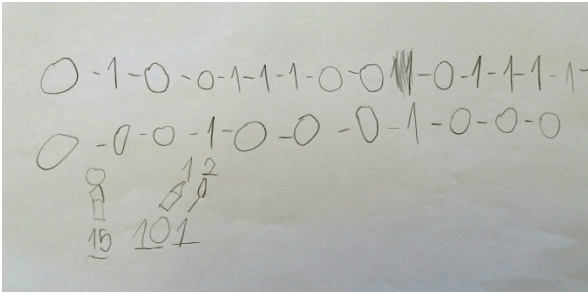 0-1-0-0-1-1-1-0-0-0-1-1-1-1-
0-0-0-1-0-0-0-1-0-0-0
1 2
15 101